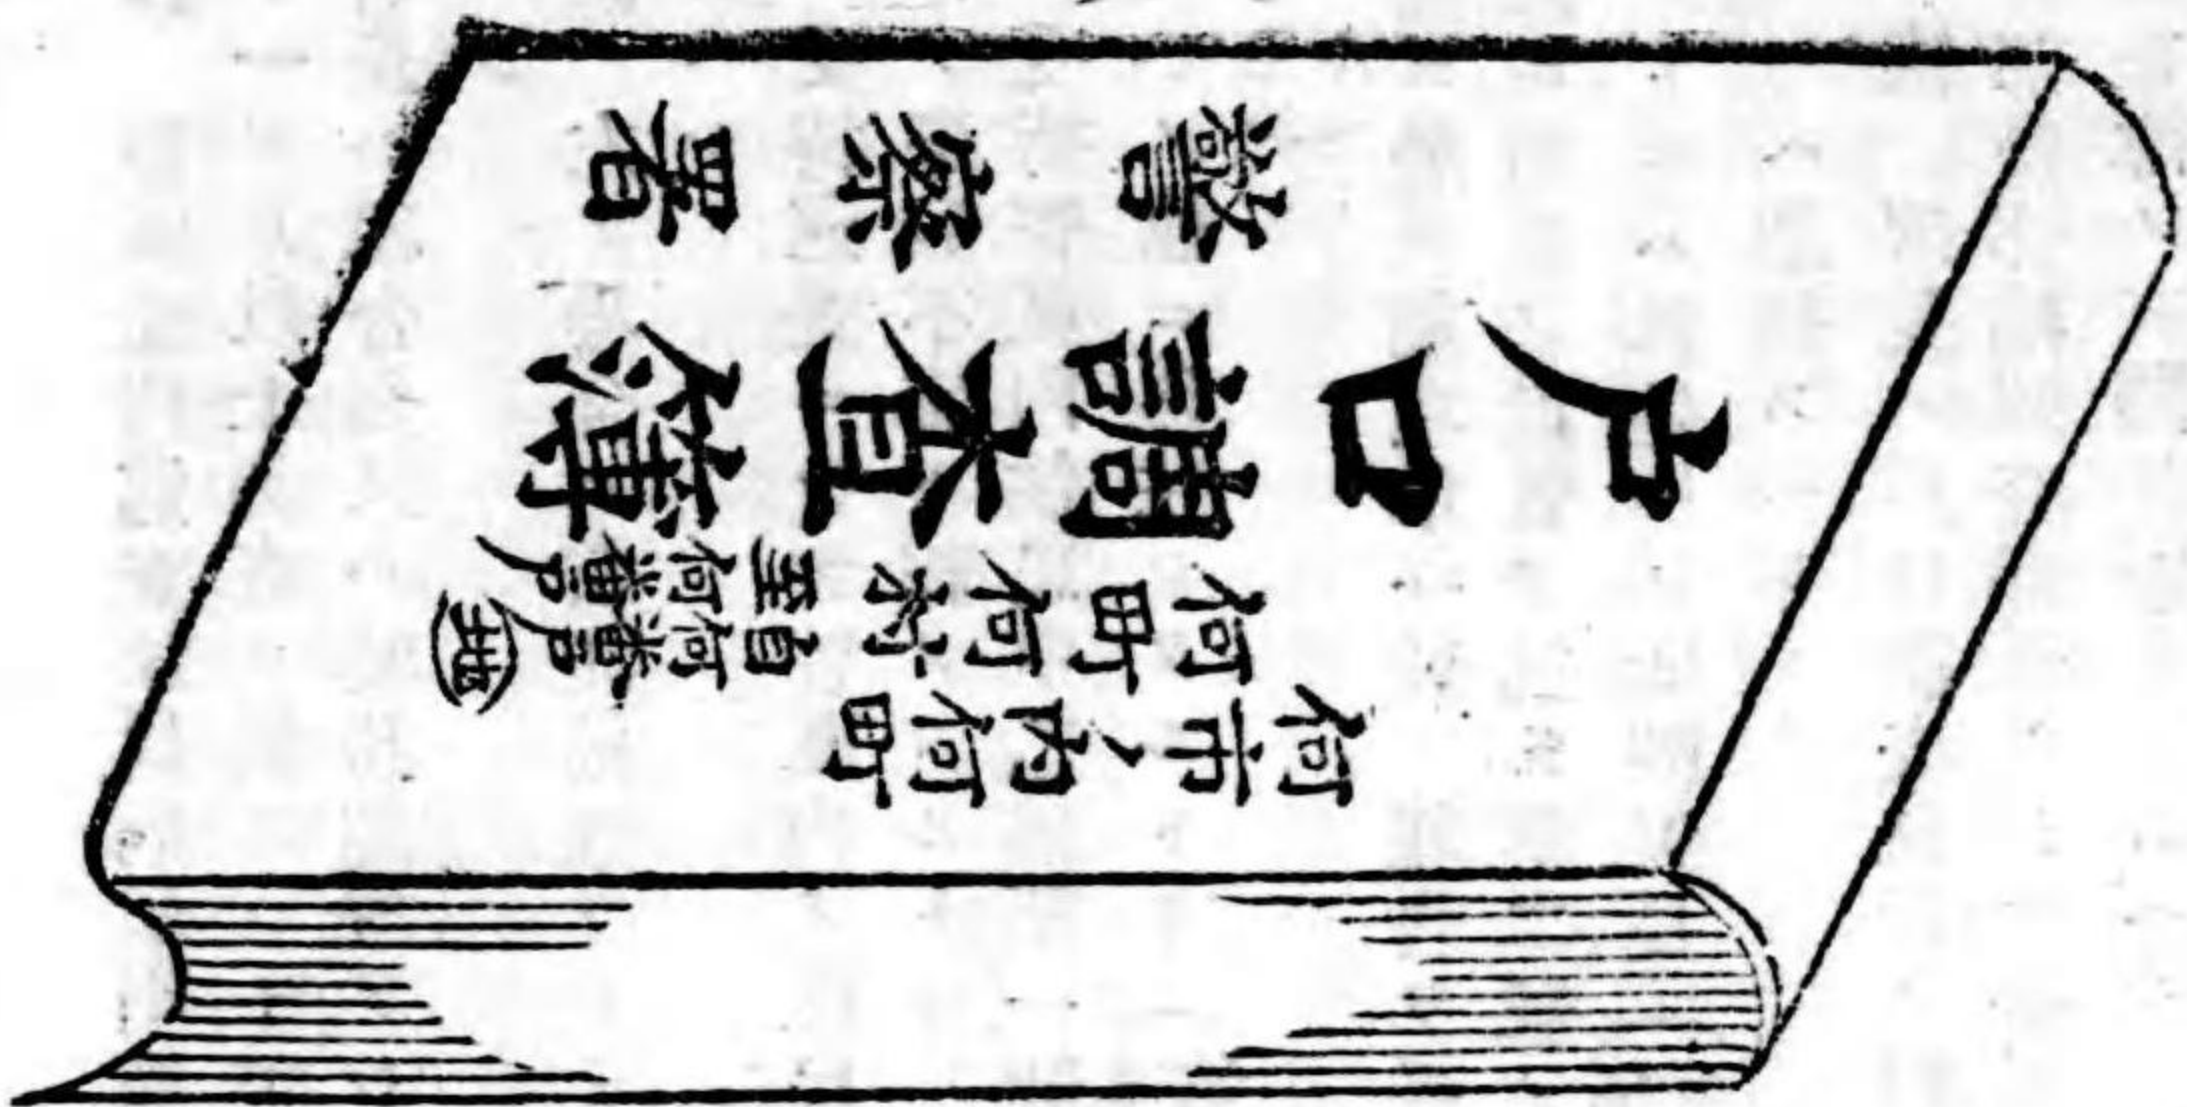 何市ノ内何町
何町何村
自何番戸
至何番戸
(地)
戸口調査簿
警察署